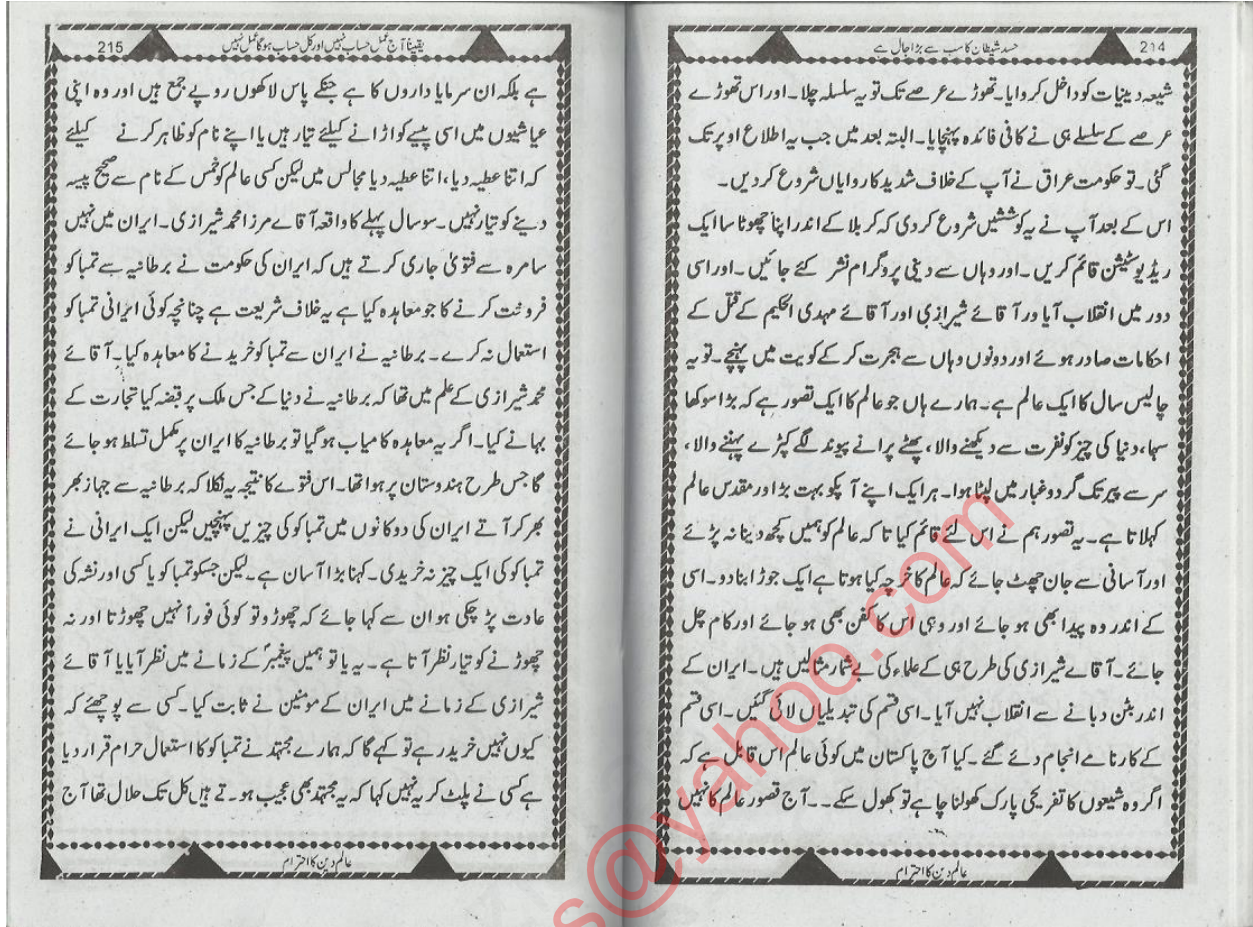 214
حسد شیطان کا سب سے بڑا جال ہے
شیعہ دینیات کو داخل کروایا۔ تھوڑے عرصے تک تو یہ سلسلہ چلا۔ اور اس تھوڑے
عرصے کے سلسلے ہی نے کافی فائدہ پہنچایا۔ البتہ بعد میں جب یہ اطلاع اوپر تک
گئی۔ تو حکومت عراق نے آپ کے خلاف شدید کاروایاں شروع کر دیں۔
اس کے بعد آپ نے یہ کوششیں شروع کر دی کہ کربلا کے اندر اپنا چھوٹا سا ایک
ریڈیو سٹیشن قائم کریں۔ اور وہاں سے دینی پروگرام نشر کئے جائیں۔ اور اسی
دور میں انقلاب آیا ور آقائے شیرازی اور آقائے مہدی الحکیم کے قتل کے
احکامات صادر ہوئے اور دونوں وہاں سے ہجرت کر کے کویت میں پہنچے۔ تو یہ
چالیس سال کا ایک عالم ہے۔ ہمارے ہاں جو عالم کا ایک تصور ہے کہ بڑا سوکھا
سہا، دنیا کی چیز کو نفرت سے دیکھنے والا، پھٹے پرانے پیوند لگے کپڑے پہننے والا،
سر سے پیر تک گرد و غبار میں لپٹا ہوا۔ ہر ایک اپنے آپکو بہت بڑا اور مقدس عالم
کہلاتا ہے۔ یہ تصور ہم نے اس لئے قائم کیا تا کہ عالم کو ہمیں کچھ دینا نہ پڑئے
اور آسانی سے جان چھٹ جائے کہ عالم کا خرچہ کیا ہوتا ہے ایک جوڑا بنا دو۔ اسی
کے اندر وہ پیدا بھی ہو جائے اور وہی اس کا کفن بھی ہو جائے اور کام چل
جائے۔ آقائے شیرازی کی طرح ہی کے علماء کی بے شمار مثالیں ہیں۔ ایران کے
اندر بٹن دبانے سے انقلاب نہیں آیا۔ اسی قسم کی تبدیلیاں لائی گئیں۔ اسی قسم
کے کارنامے انجام دئے گئے۔ کیا آج پاکستان میں کوئی عالم اس قابل ہے کہ
اگر وہ شیعوں کا تفریحی پارک کھولنا چاہے تو کھول سکے۔۔ آج قصور عالم کا نہیں
عالم دین کا احترام
215
یقیناً آج عمل حساب نہیں اور کل حساب ہوگا عمل نہیں
ہے بلکہ ان سرمایا داروں کا ہے جنکے پاس لاکھوں روپے جمع ہیں اور وہ اپنی
عیاشیوں میں اسی پیسے کو اڑانے کیلئے تیار ہیں یا اپنے نام کو ظاہر کرنے کیلئے
کہ اتنا عطیہ دیا، اتنا عطیہ دیا مجالس میں لیکن کسی عالم کو خمس کے نام سے صحیح پیسہ
دینے کو تیار نہیں۔ سو سال پہلے کا واقعہ آقائے مرزا محمد شیرازی۔ ایران میں نہیں
سامرہ سے فتویٰ جاری کرتے ہیں کہ ایران کی حکومت نے برطانیہ سے تمباکو
فروخت کرنے کا جو معاہدہ کیا ہے یہ خلاف شریعت ہے چنانچہ کوئی ایرانی تمباکو
استعمال نہ کرے۔ برطانیہ نے ایران سے تمباکو خریدنے کا معاہدہ کیا۔ آقائے
محمد شیرازی کے علم میں تھا کہ برطانیہ نے دنیا کے جس ملک پر قبضہ کیا تجارت کے
بہانے کیا۔ اگر یہ معاہدہ کامیاب ہو گیا تو برطانیہ کا ایران پر مکمل تسلط ہو جائے
گا جس طرح ہندوستان پر ہوا تھا۔ اس فتوے کا نتیجہ یہ نکلا کہ برطانیہ سے جہاز بھر
بھر کر آتے ایران کی دوکانوں میں تمباکو کی چیزیں پہنچیں لیکن ایک ایرانی نے
تمباکو کی ایک چیز نہ خریدی۔ کہنا بڑا آسان ہے۔ لیکن جسکو تمباکو یا کسی اور نشہ کی
عادت پڑ چکی ہو ان سے کہا جائے کہ چھوڑو تو کوئی فوراً نہیں چھوڑتا اور نہ
چھوڑنے کو تیار نظر آتا ہے۔ یہ یا تو ہمیں پیغمبرؐ کے زمانے میں نظر آیا یا آقائے
شیرازی کے زمانے میں ایران کے مومنین نے ثابت کیا۔ کسی سے پوچھئے کہ
کیوں نہیں خرید رہے تو کہے گا کہ ہمارے مجتہد نے تمباکو کا استعمال حرام قرار دیا
ہے کسی نے پلٹ کر یہ نہیں کہا کہ یہ مجتہد بھی عجیب ہو۔تے ہیں کل تک حلال تھا آج
عالم دین کا احترام
s@yahoo.com